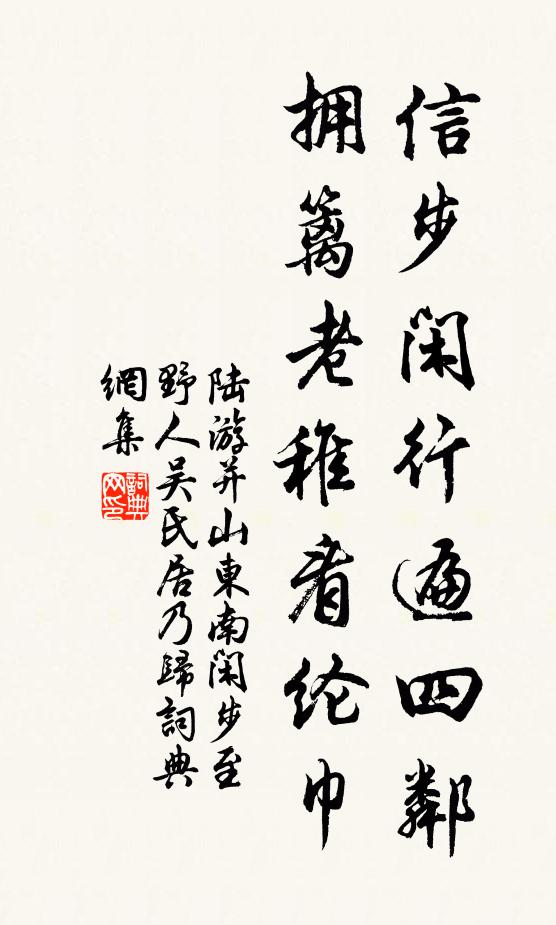 信步闲行遍四鄰
拥篱老稚看纶巾
陆游并山東南闲步至
野人吴氏居乃歸詞典
網集
詞典网印